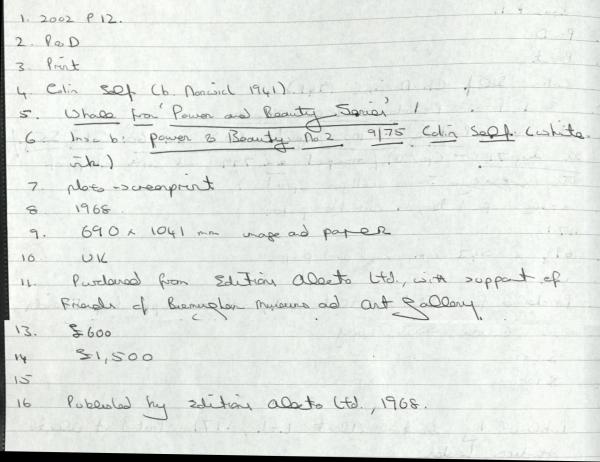 1. 2002 P 12.
2. P&D
3 Print
4 Colin Self (b. Norwich 1941)
5. Whale from 'Power and Beauty Series'
6. Insc. b: Power & Beauty No 2 9/75 Colin Self (white
ink.)
7. photo-screenprint
8 1968
9. 690 x 1041 mm image ad paper
10 UK
11. Purchased from Editions Alecto Ltd., with support of
Friends of Birmingham Museums ad Art Gallery.
13. £600
14 £1,500
15
16 Published by Editions Alecto Ltd., 1968.